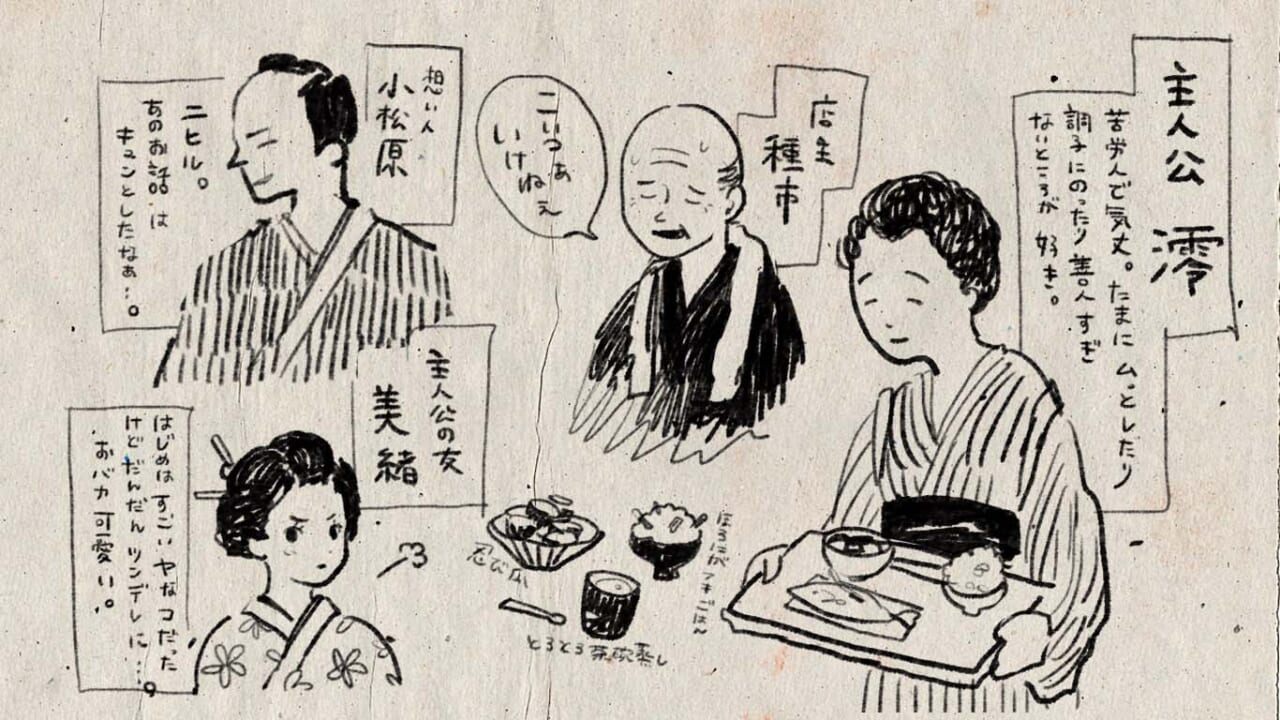 主人公 澪
苦労人で気丈。たまにムっとしたり
調子にのったり善人すぎ
ないところが好き。
店主
種市
こいつぁ
いけねぇ
想い人
小松原
ニヒル。
あのお話は
キュンとしたなぁ…。
主人公の友
美緒
はじめはすごいヤなコだった
けどだんだんツンデレに…。
おバカ可愛い。
忍び瓜
ほろにがフキごはん
とろとろ茶碗蒸し